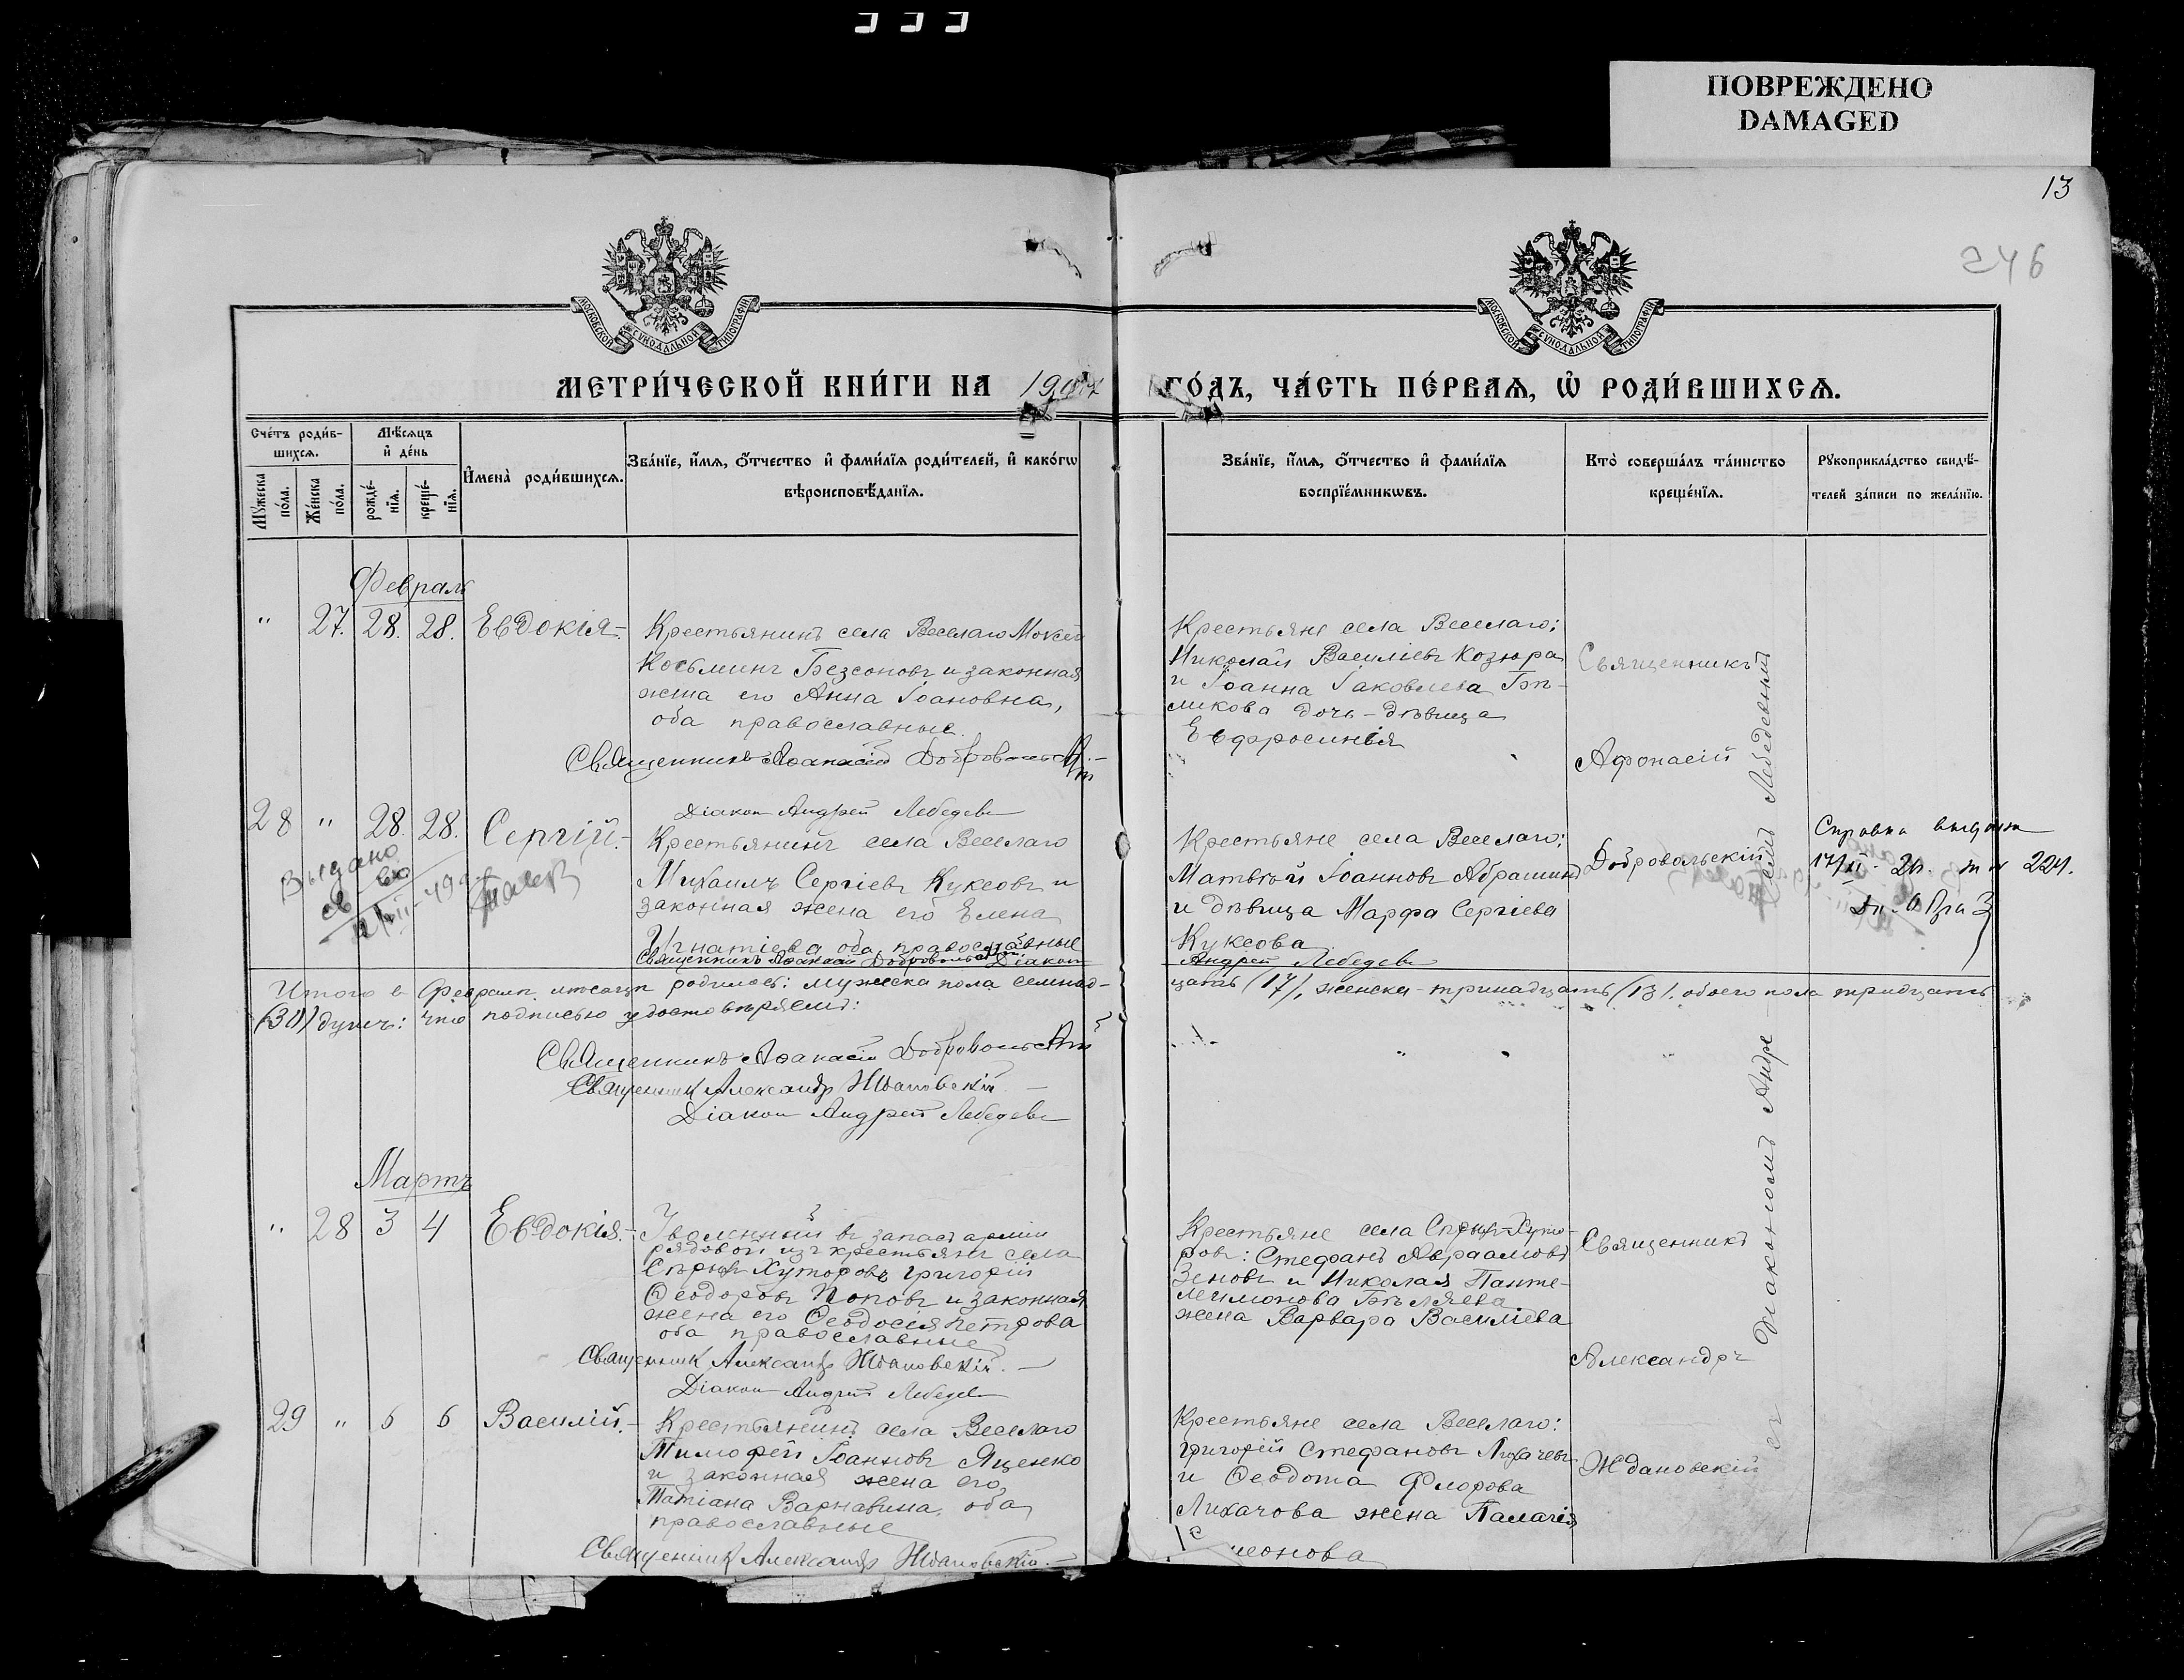 ПОВРЕЖДЕНО
DAMAGED
13
246
МОСКОВСКОЙ СѴНОДАЛЬНОЙ ТИПОГРАФІИ
МОСКОВСКОЙ СѴНОДАЛЬНОЙ ТИПОГРАФІИ
МЕТРИ́ЧЕСКОЙ КНИ́ГИ НА 1904 ГО́ДЪ, ЧА́СТЬ ПЕ́РВАѦ, Ѡ҆ РОДИ́ВШИХСѦ.
Сче́тъ роди́в-
шихсѧ.
Мѣ́сѧцъ
и҆ де́нь
Мꙋ́жеска
по́ла.
Же́нска
по́ла.
рожде́-
нїѧ.
креще́-
нїѧ.
И҆мена̀ роди́вшихсѧ.
Зва́нїе, и҆́мѧ, ѻ҆́тчество и҆ фами́лїѧ роди́телей, и҆ како́гѡ
вѣроисповѣ́данїѧ.
Зва́нїе, и҆́мѧ, ѻ҆́тчество и҆ фами́лїѧ
воспрїе́мникѡвъ.
Кто̀ соверша́лъ та́инство
креще́нїѧ.
Рꙋкоприкла́дство свидѣ́-
телей за́писи по жела́нїю.
Февраль
" 27. 28. 28. Евдокія.-
Крестьянинъ села Веселаго Моисей
Косьминъ Безсоновъ и законная
жена его Анна Іоановна,
оба православные.
Священникъ Аѳанасій Добровольскій.-
Діаконъ Андрей Лебедевъ
Крестьяне села Веселаго:
Николай Василіевъ Козюра
и Іоанна Іаковлева
ликова дочь-дѣвица
Евфросинія
Священникъ
Афонасій
Добровольскій
28 " 28. 28. Сергій.-
Выдано
св во
Крестьянинъ села Веселаго
Михаилъ Сергіевъ Куксовъ и
законная жена его Елена
Игнатіева оба православные
Священникъ Аѳанасій Добровольскій Діаконъ
Крестьяне села Веселаго:
Матвѣй Іоанновъ Абрашинъ
и дѣвица Марфа Сергіева
Куксова
Андрей Лебедевъ
Справка выдана
17/II- 26. 224.
Итого в Февралѣ мѣсяцѣ родилось: мужеска пола семнад-
цать (17), женска-тринадцать (13), обоего пола тридцать
(30) душъ: что подписью удостовѣряемъ:
Священникъ Аѳанасій Добровольскій
Священникъ Александръ Ждановскій.-
Діаконъ Андрей Лебедевъ
Мартъ
" 28 3 4 Евдокія.-
Уволенный въ запасъ арміи
рядовой изъ крестьянъ села
Сѣрыхъ Хуторовъ Григорій
Ѳеодоровъ Поповъ и законная
жена его Ѳеодосія Петрова
оба православные
Священникъ Александръ Ждановскій.-
Діаконъ Андрей Лебедевъ
Крестьяне села Сѣрыхъ-Хуто-
ровъ: Стефанъ Авраамовъ
Зеновъ и Николая Панте-
леимонова Бѣляева
жена Варвара Василіева
Священникъ
Александръ
Ждановскій
съ Діакономъ Андреемъ Лебедевымъ
29 " 6 6 Василій.-
Крестьянинъ села Веселаго
Тимофей Іоанновъ Яценко
и законная жена его
Татіана Варнавина, оба
православные
Священникъ Александръ Ждановскій.-
Крестьяне села Веселаго:
Григорій Стефановъ Лихачевъ
и Ѳеодота Флорова
Лихачова жена Палагія